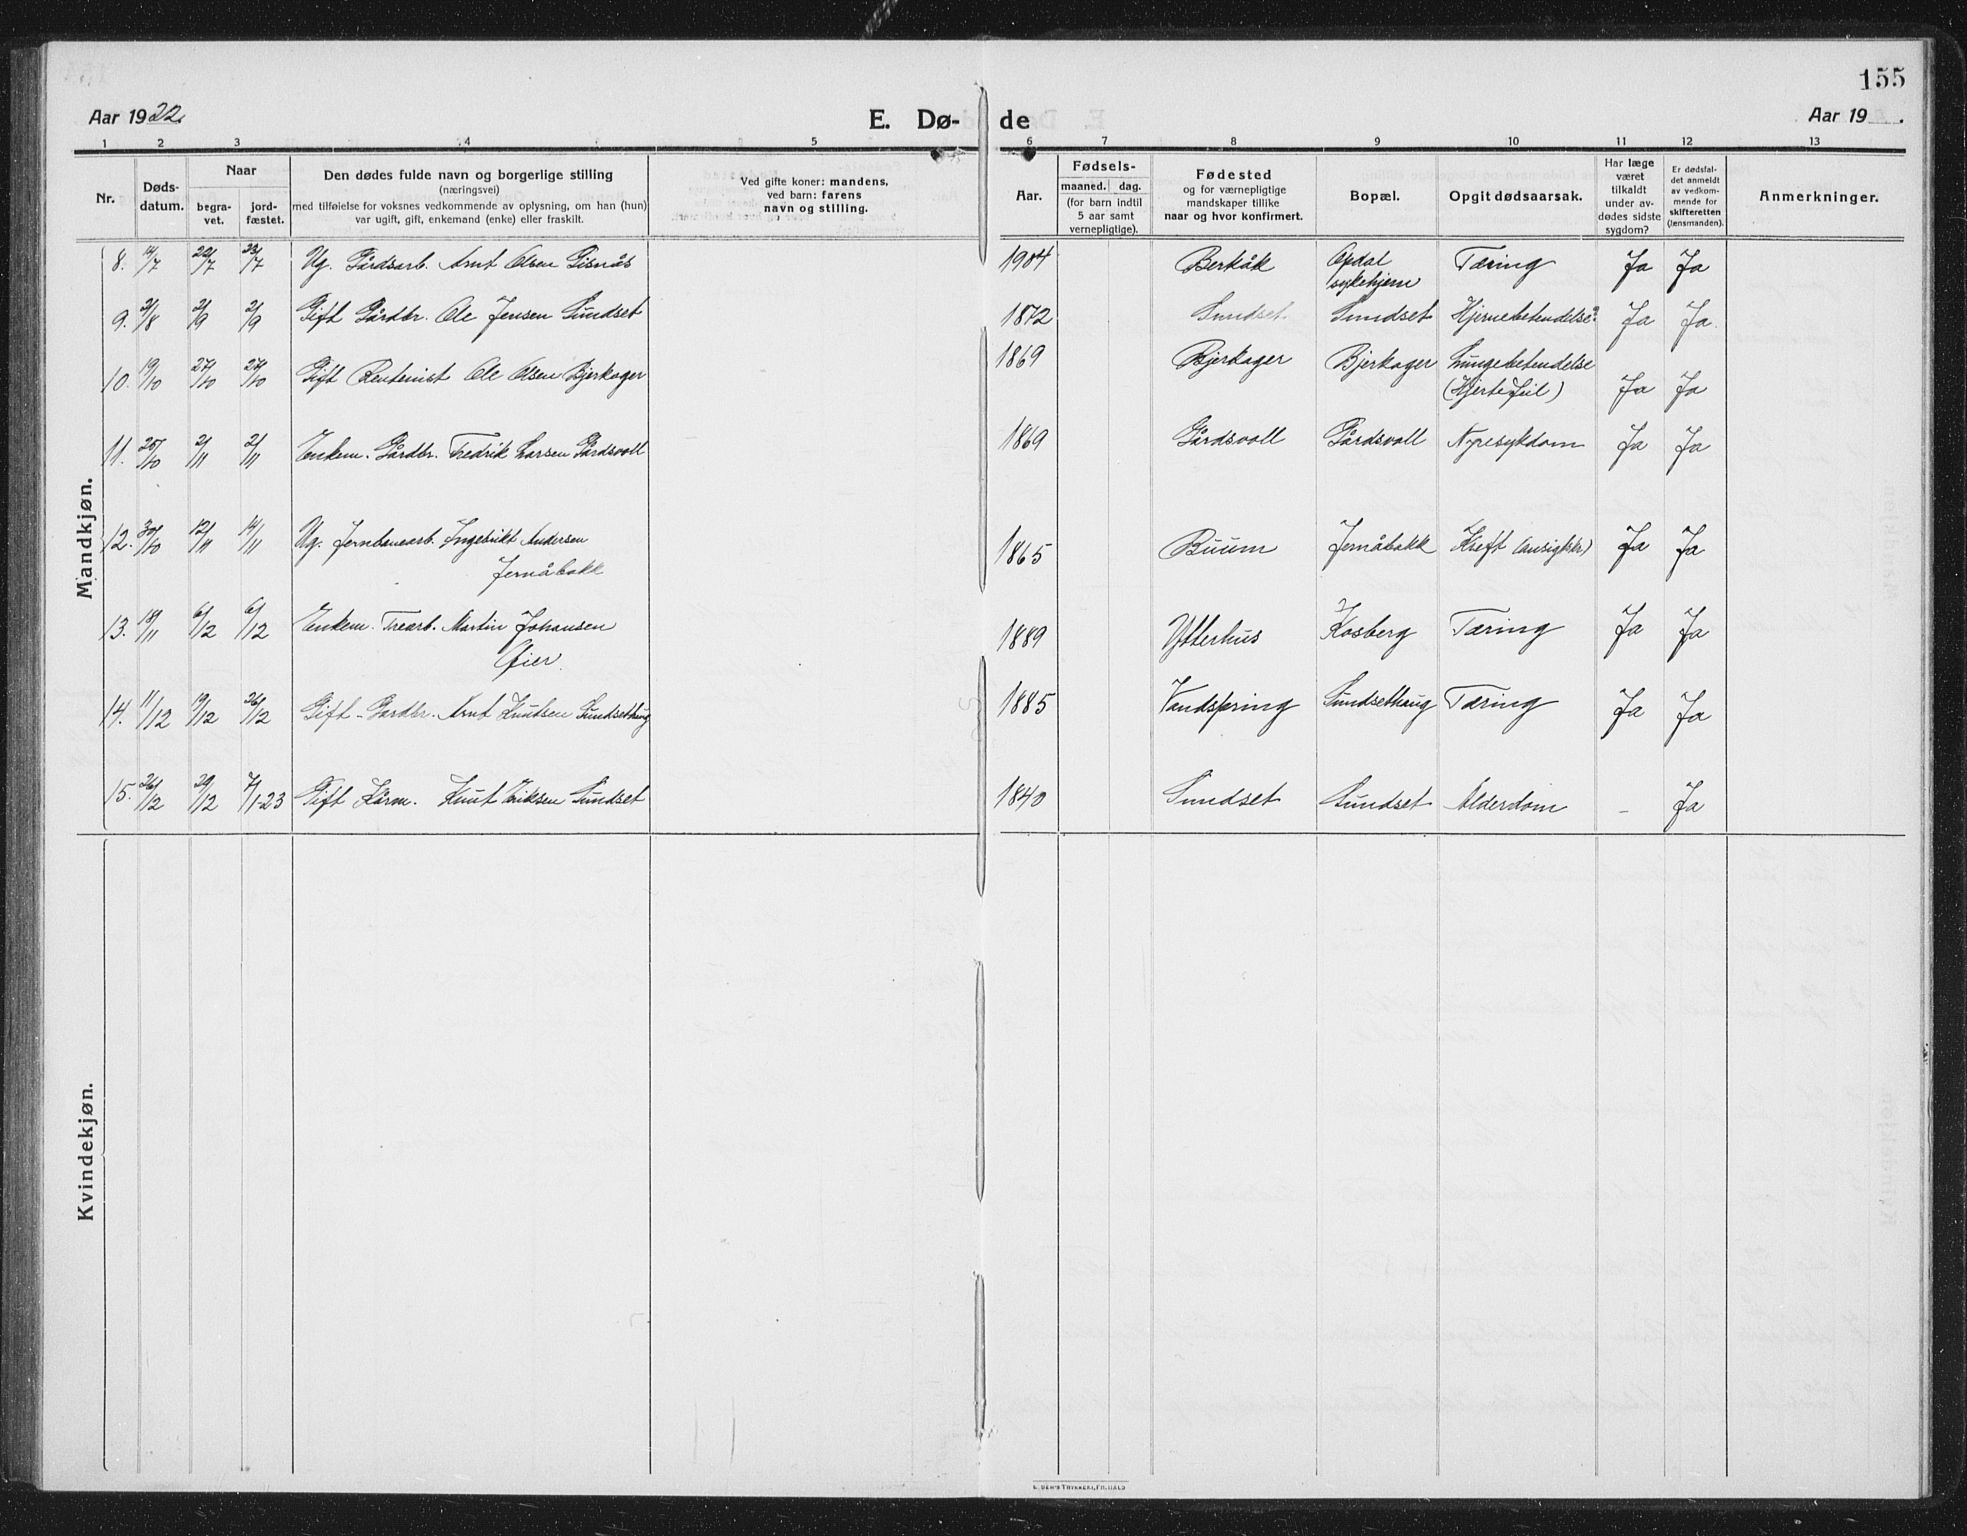 155
Aar 1922.
E. Dø-
de
Aar 19 .
1 2 3 4 5 6 7 8 9 10 11 12 13
Nr.
Døds-
datum.
Naar
begra-
vet.
jord-
fæstet.
Den dødes fulde navn og borgerlige stilling
(næringsvei)
med tilføielse for voksnes vedkommende av oplysning, om han (hun)
var ugift, gift, enkemand (enke) eller fraskilt.
Ved gifte koner: mandens,
ved barn: farens
navn og stilling.
Aar.
Fødsels-
maaned. dag.
(for barn indtil
5 aar samt
vernepligtige).
Fødested
og for værnepligtige
mandskaper tillike
naar og hvor konfirmert.
Bopæl.
Opgit dødsaarsak.
Har læge
været
tilkaldt
under av-
dødes sidste
sygdom?
Er dødsfal-
det anmeldt
av vedkom-
mende for
skifteretten
(lensmanden).
Anmerkninger.
Mandkjøn.
8. 14/7 22/7 23/7 Ug. Gårdsarb. Arnt Olsen Gisnås 1904 Berkåk Opdal Tæring Ja Ja
sykehjem
9. 21/8 2/9 2/9 Gift Gårdbr. Ole Jensen Sundset 1872 Sundset Sundset Hjernebetendelse Ja Ja
10. 19/10 27/10 27/10 Gift Rentenist Ole Olsen Bjerkager 1869 Bjerkager Bjerkager Lungebetendelse
(Hjertefeil) Ja Ja
11. 25/10 2/11 2/11 Enkem. Gårdbr. Fredrik Larsen Gårdsvoll 1869 Gårdsvoll Gårdsvoll Nyresykdom Ja Ja
12. 30/10 12/11 14/11 Ug. Jernbanearb. Ingebrikt Andersen 1865 Buum Jernåbakk Kreft Ja Ja
Jernåbakk
13. 18/11 6/12 6/12 Enkem. Trearb. Martin Johansen 1889 Ytterhus Kosberg Tæring Ja Ja
Øier.
14. 11/12 19/12 26/12 Gift - Gardbr. Arnt Knutsen Sundsethaug 1885 Vandspring Sundsethaug Tæring Ja Ja
15. 26/12 29/12 7/1-23 Gift Kårm. Knut Eriksen Sundset 1840 Sundset Sundset Alderdom - Ja
Kvindekjøn.